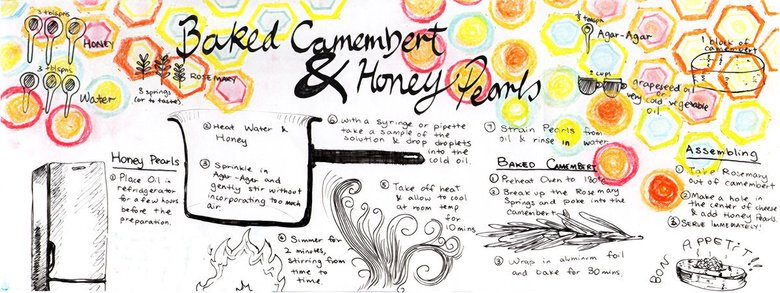 Baked Camembert
& Honey Pearls
3 tblspns
HONEY
3 tblspns
Water
ROSEMARY
3 springs
(or to taste)
3 tblspns
Agar-Agar
2 cups
grapeseed oil
or
very cold vegetable
oil
1 block of
camembert
Honey Pearls
① Place Oil in
refridgerator
for a few hours
before the
preparation.
② Heat Water &
Honey
③ Sprinkle in
Agar-Agar and
gently stir without
incorporating too much
air
④ Simmer for
2 minutes,
stirring from
time to
time.
⑤ Take off heat
& allow to cool
at room temp
for
10 mins
⑥ with a syringe or pipette
take a sample of the
solution & drop droplets
into the
cold oil.
⑦ Strain Pearls from
oil & rinse in water
BAKED CAMEMBERT
① Preheat Oven to 180°C
② Break up the Rosemary
Springs and poke into the
Camembert
③ Wrap in aluminum foil
and bake for 30 mins.
Assembling
① Take Rosemary
out of camembert
② Make a hole in
the center of cheese
& add Honey Pearls
③ SERVE IMMEDIATELY!
BON APPETIT!